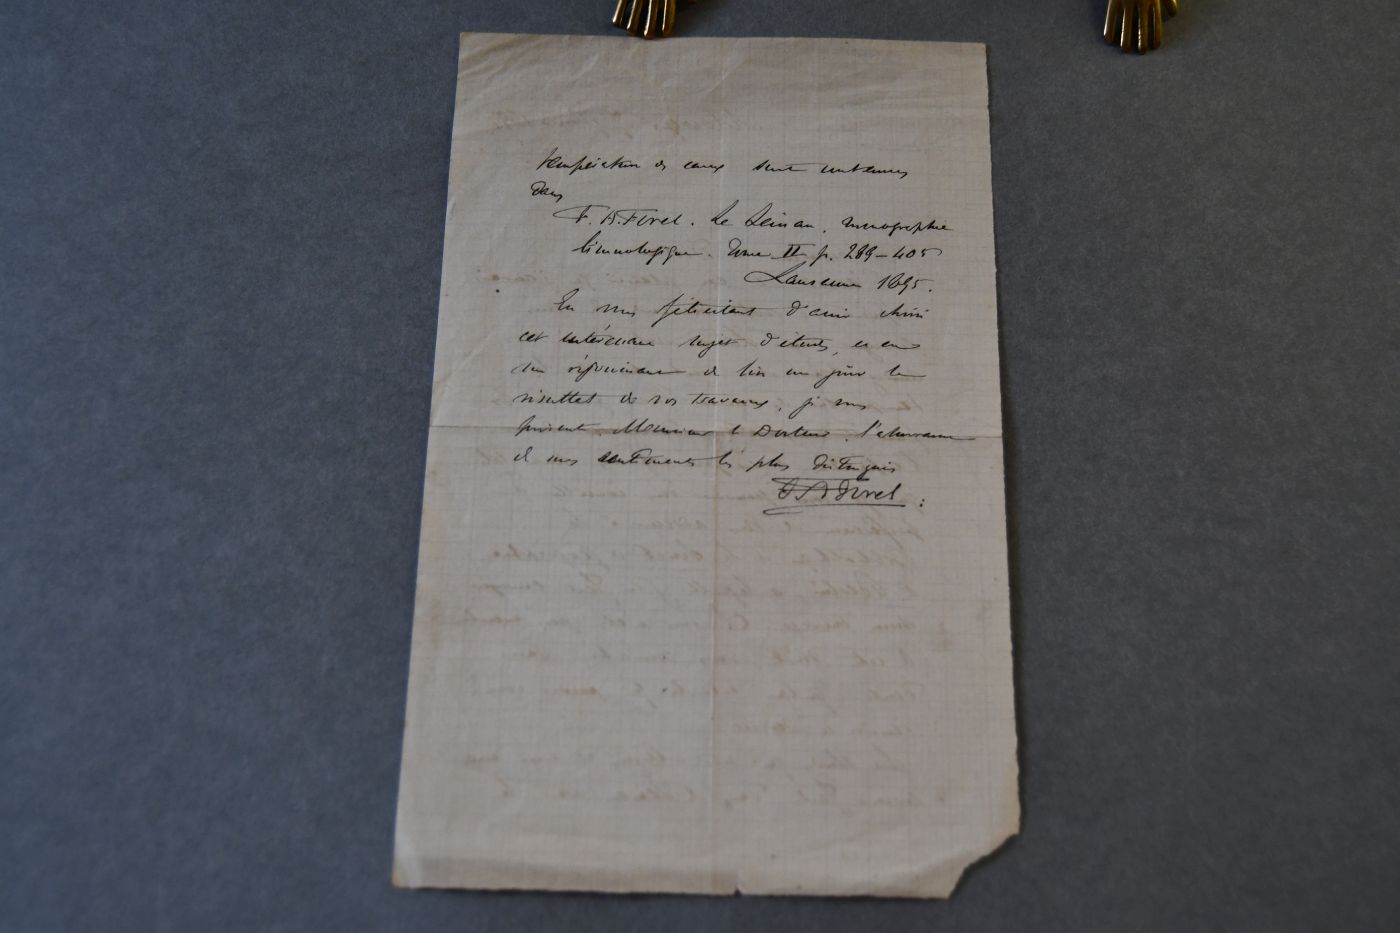 température des eaux sont contenues
dans
F. A. Forel. Le Léman, monographie
limnologique. Tome II p. 289-405
Lausanne 1895.
En vous félicitant d'avoir choisi
cet intéressant sujet d'étude, et en
me réjouissant de lire un jour les
résultats de vos travaux, je vous
présente, Monsieur le Docteur, l'assurance
de mes sentiments les plus distingués
F A Forel